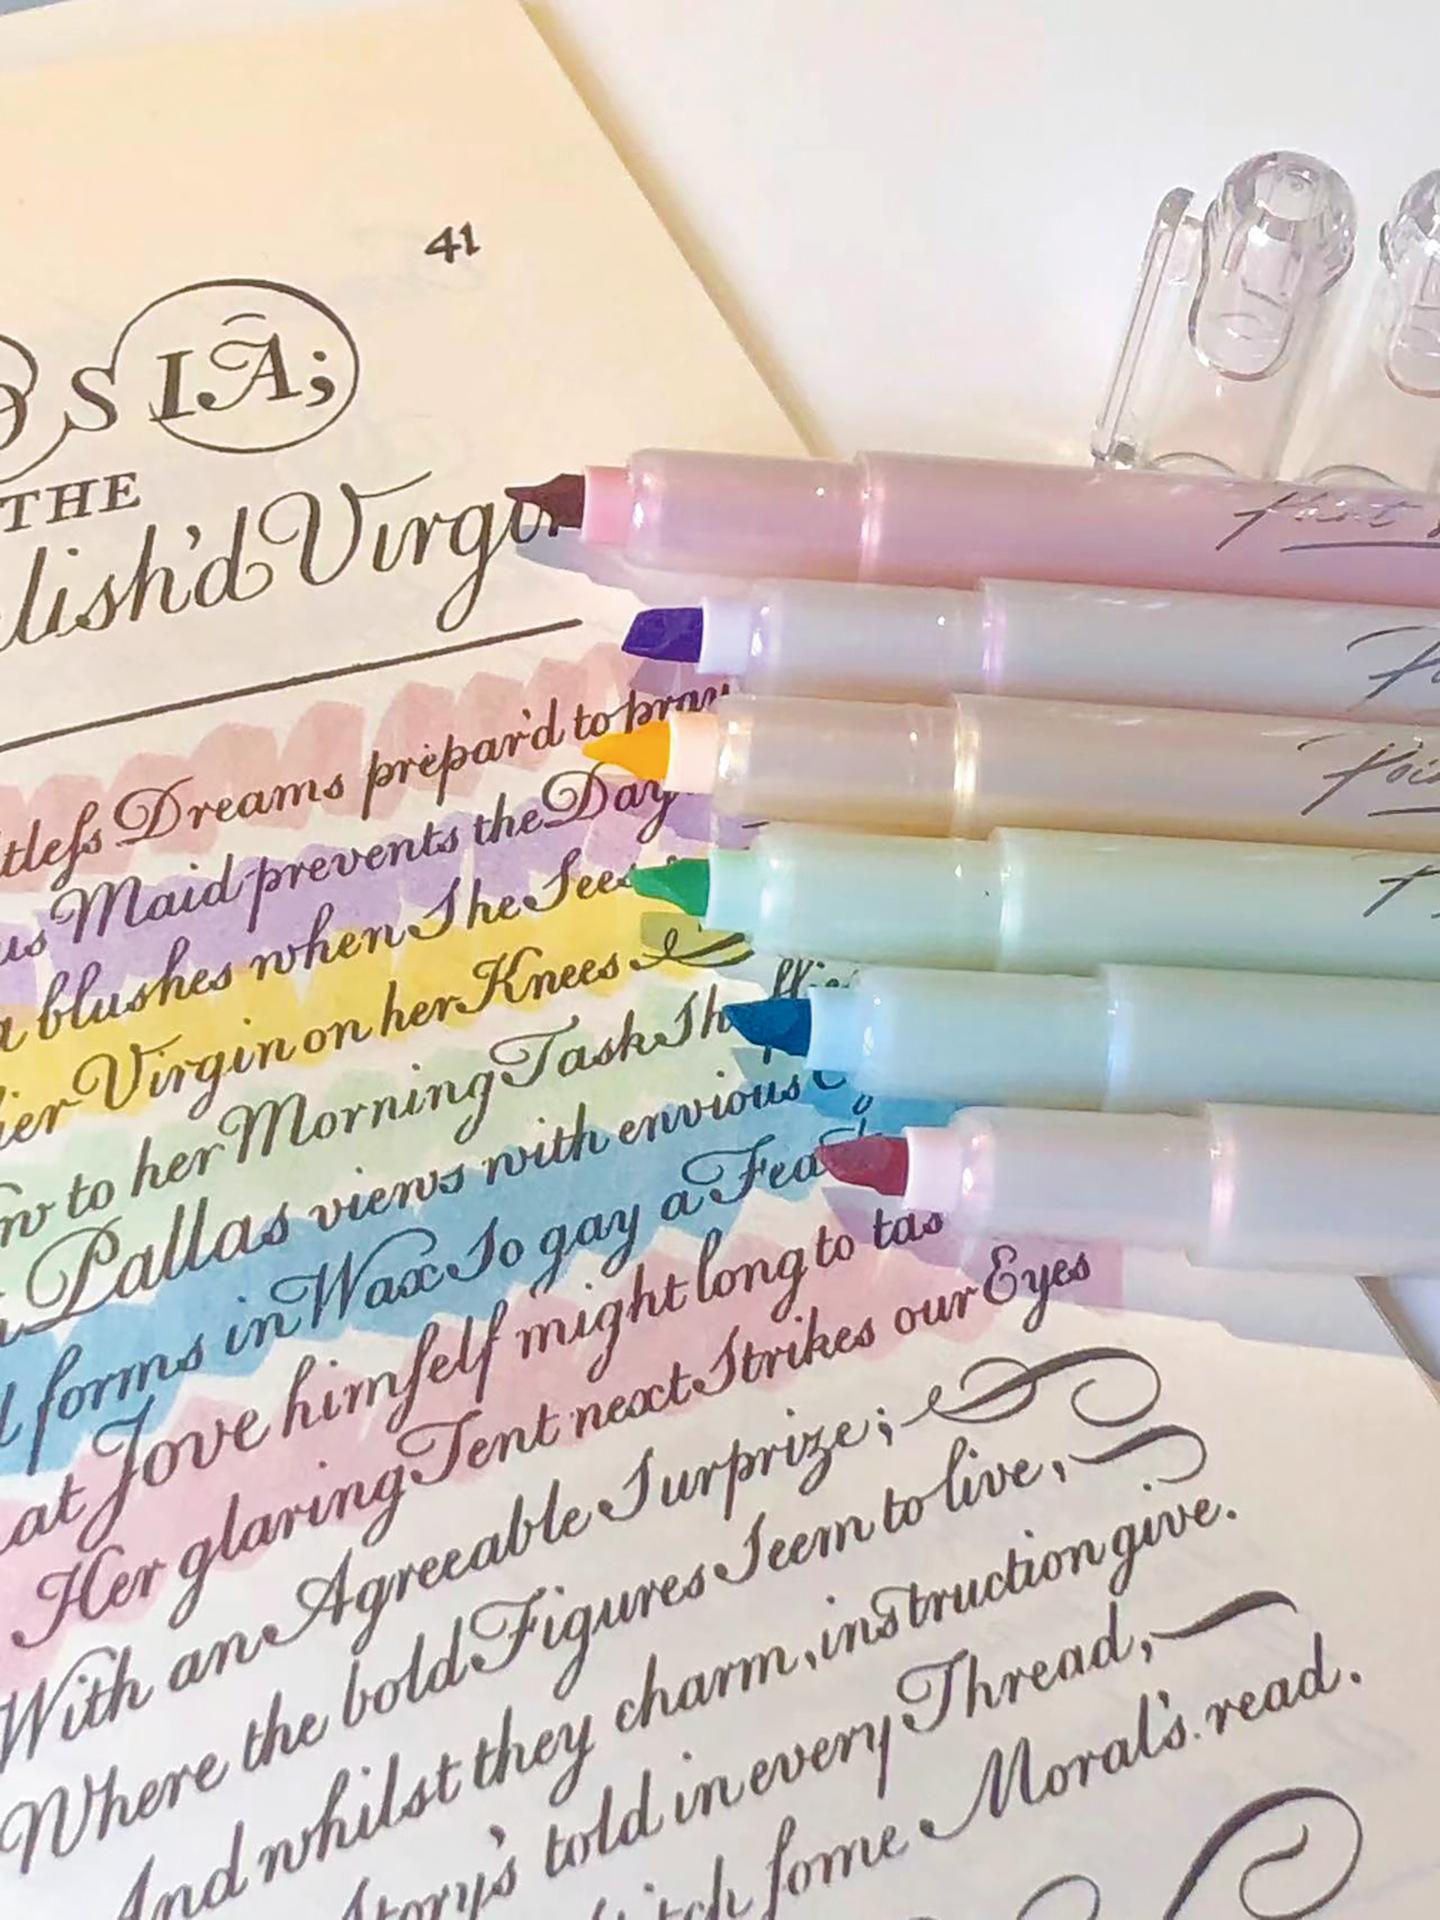 41
SIA;
THE
lish'd Virgin
tleſs Dreams prepar'd to pray
us Maid prevents the Day
a blushes when She Sees
ier Virgin on her Knees
w to her Morning Task She flies
Pallas views with envious
forms in Wax So gay a Feast
at Jove himſelf might long to tas
Her glaring Tent next Strikes our Eyes
With an Agreeable Surprize;
Where the bold Figures Seem to live,
And whilst they charm, instruction give.
Story's told in every Thread,
ſome Moral's read.
Point